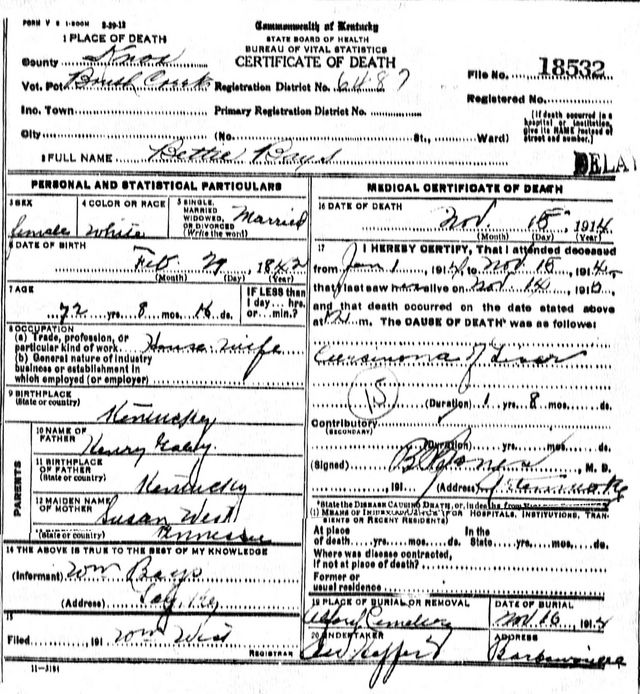 FORM V S 1-500M 3-29-12
Commonwealth of Kentucky
STATE BOARD OF HEALTH
BUREAU OF VITAL STATISTICS
CERTIFICATE OF DEATH
1 PLACE OF DEATH
County Knox
Vot. Pct Brush Creek Registration District No. 6487
File No. 18532
Registered No.
Inc. Town Primary Registration District No.
[If death occurred in a hospital or institution, give its NAME instead of street and number.]
City (No. St., Ward)
2 FULL NAME Bettie Bays
DELA
PERSONAL AND STATISTICAL PARTICULARS
3 SEX female
4 COLOR OR RACE White
5 SINGLE, MARRIED WIDOWED, OR DIVORCED (Write the word) Married
6 DATE OF BIRTH
Feb 29, 1842
(Month) (Day) (Year)
7 AGE
72 yrs. 8 mos. 16 ds.
IF LESS than 1 day ... hrs. or ... min.?
8 OCCUPATION
(a) Trade, profession, or particular kind of work House wife
(b) General nature of industry business or establishment in which employed (or employer)
9 BIRTHPLACE
(State or country)
Kentucky
PARENTS
10 NAME OF FATHER
Henry
11 BIRTHPLACE OF FATHER
(State or country)
Kentucky
12 MAIDEN NAME OF MOTHER
Susan West
(State or country)
Tennessee
14 THE ABOVE IS TRUE TO THE BEST OF MY KNOWLEDGE
(Informant) Wm Bays
(Address) Ky
15
Filed 191 Wm West
REGISTRAR
11-3184
MEDICAL CERTIFICATE OF DEATH
16 DATE OF DEATH
Nov 15, 1914
(Month) (Day) (Year)
17 I HEREBY CERTIFY, That I attended deceased
from Jan 1, 1914, to Nov 15, 1914
that I last saw her alive on Nov 14, 191
and that death occurred on the date stated above
at 12 m. The CAUSE OF DEATH* was as follows:
Carcinoma of Liver
15
(Duration) 1 yrs. 8 mos. ds.
Contributory
(SECONDARY)
(Duration) yrs. mos. ds.
(Signed) Jones, M. D.
, 191 (Address)
*State the DISEASE CAUSING DEATH, or, in deaths from
(1) MEANS OF
(FOR HOSPITALS, INSTITUTIONS, TRANSIENTS OR RECENT RESIDENTS)
At place of death yrs. mos. ds. In the State yrs. mos. ds.
Where was disease contracted,
If not at place of death?
Former or
usual residence
19 PLACE OF BURIAL OR REMOVAL
Cemetery
DATE OF BURIAL
Nov 16, 1914
20 UNDERTAKER
ADDRESS
Barbourville